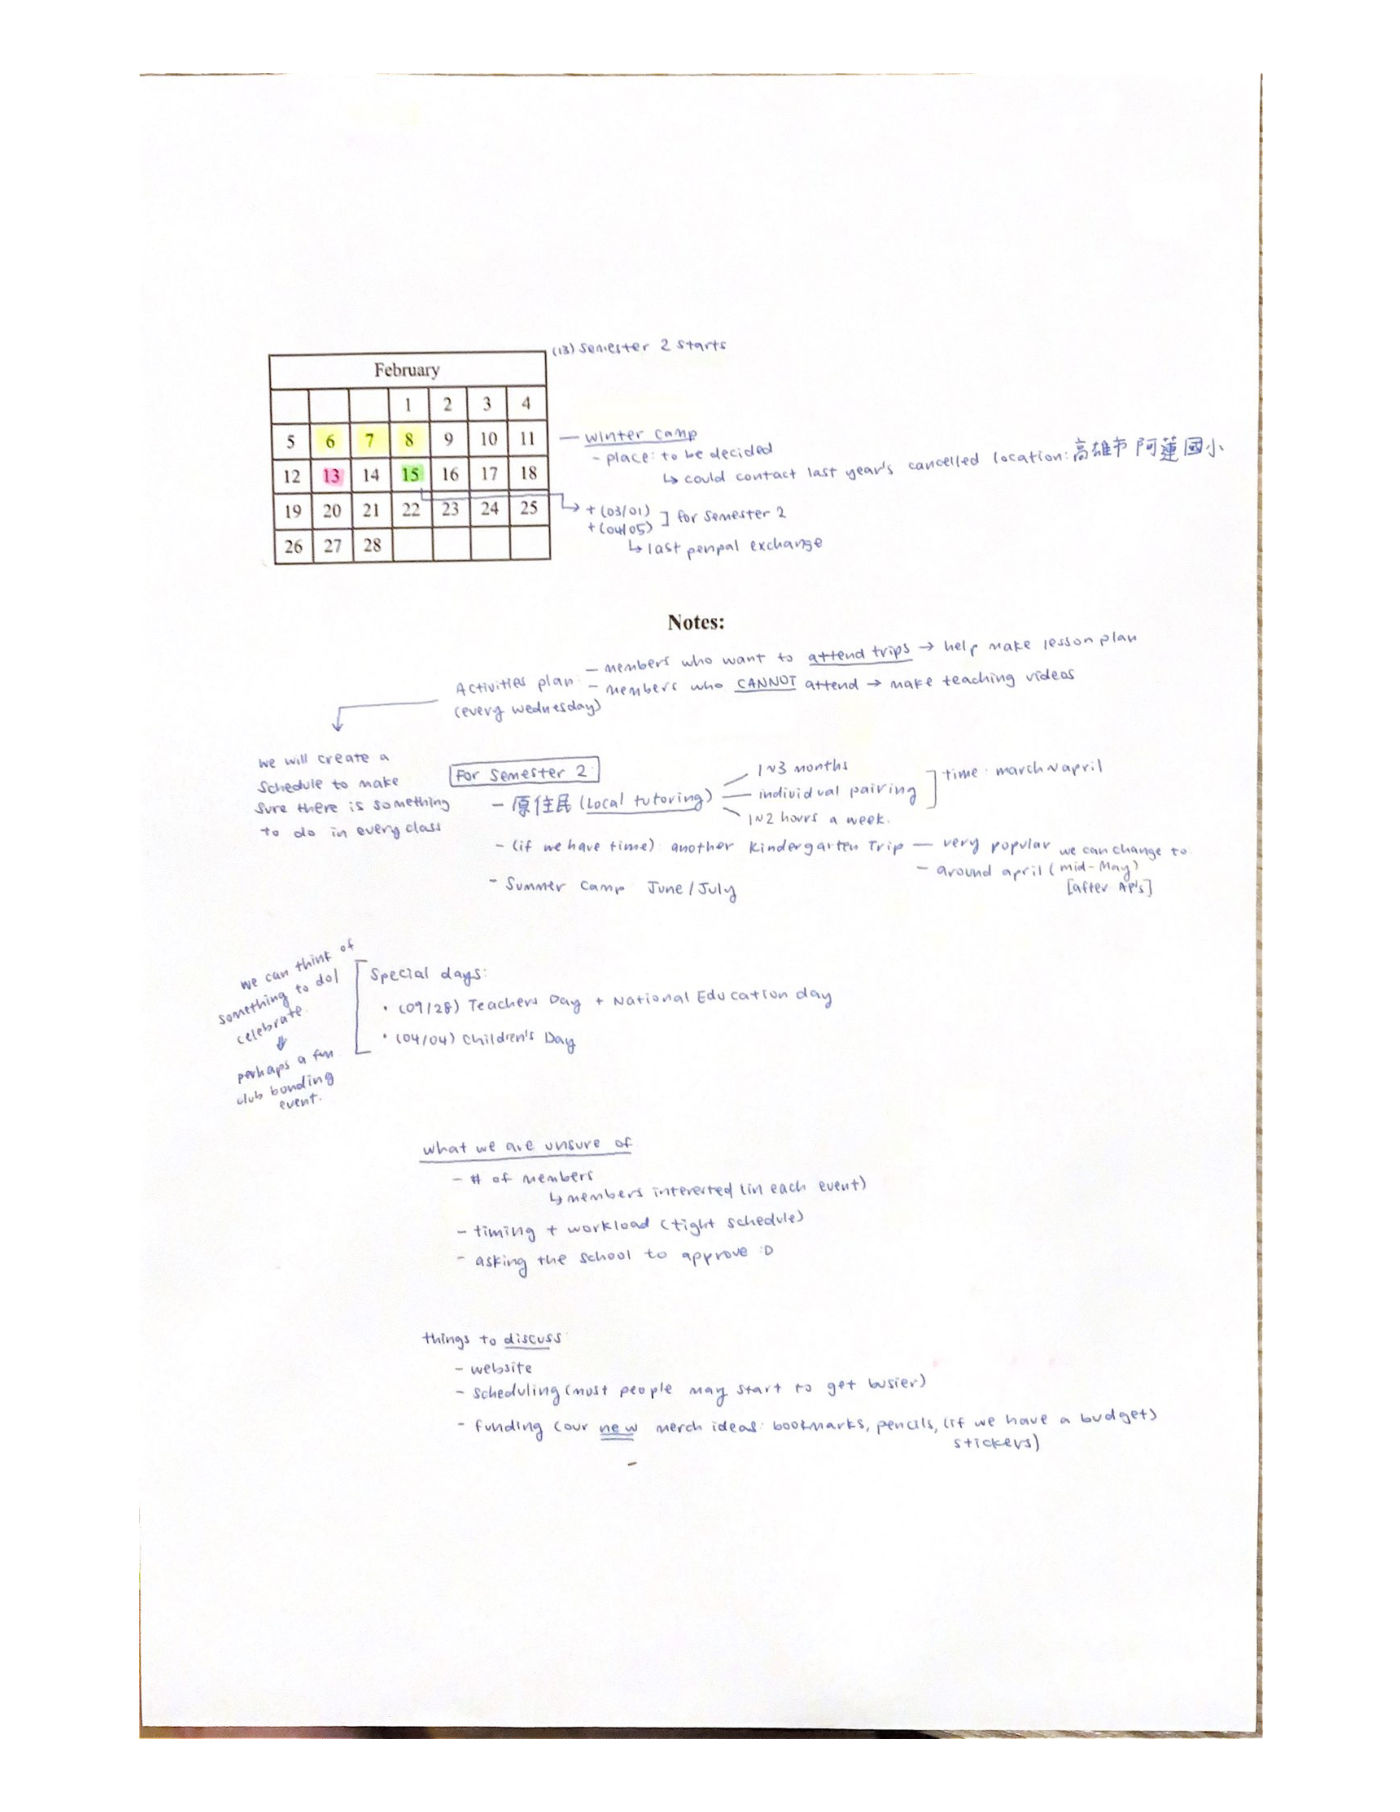 (13) Semester 2 starts
February
1 2 3 4
5 6 7 8 9 10 11
12 13 14 15 16 17 18
19 20 21 22 23 24 25
26 27 28
— winter camp
- place: to be decided
↳ could contact last year's cancelled location: 高雄市 阿蓮國小
→ + (03/01)
+ (04/05) ] for Semester 2
↳ last penpal exchange
Notes:
Activities plan:
(every wednesday)
— members who want to attend trips → help make lesson plan
— members who CANNOT attend → make teaching videos
we will create a
schedule to make
sure there is something
to do in every class
For Semester 2
- 原住民 (Local tutoring)
1~3 months
individual pairing
1~2 hours a week.
time: march~april
- (if we have time) another Kindergarten Trip — very popular
- around april (mid-May)
we can change to
[after AP's]
- Summer camp June/July
we can think of
something to do/
celebrate.
⇓
perhaps a fun
club bonding
event.
Special days:
• (09/28) Teachers Day + National Education day
• (04/04) Children's Day
what we are unsure of
- # of members
↳ members interested (in each event)
- timing + workload (tight schedule)
- asking the school to approve :D
things to discuss
- website
- scheduling (most people may start to get busier)
- funding (our new merch ideas: bookmarks, pencils, (if we have a budget)
stickers)